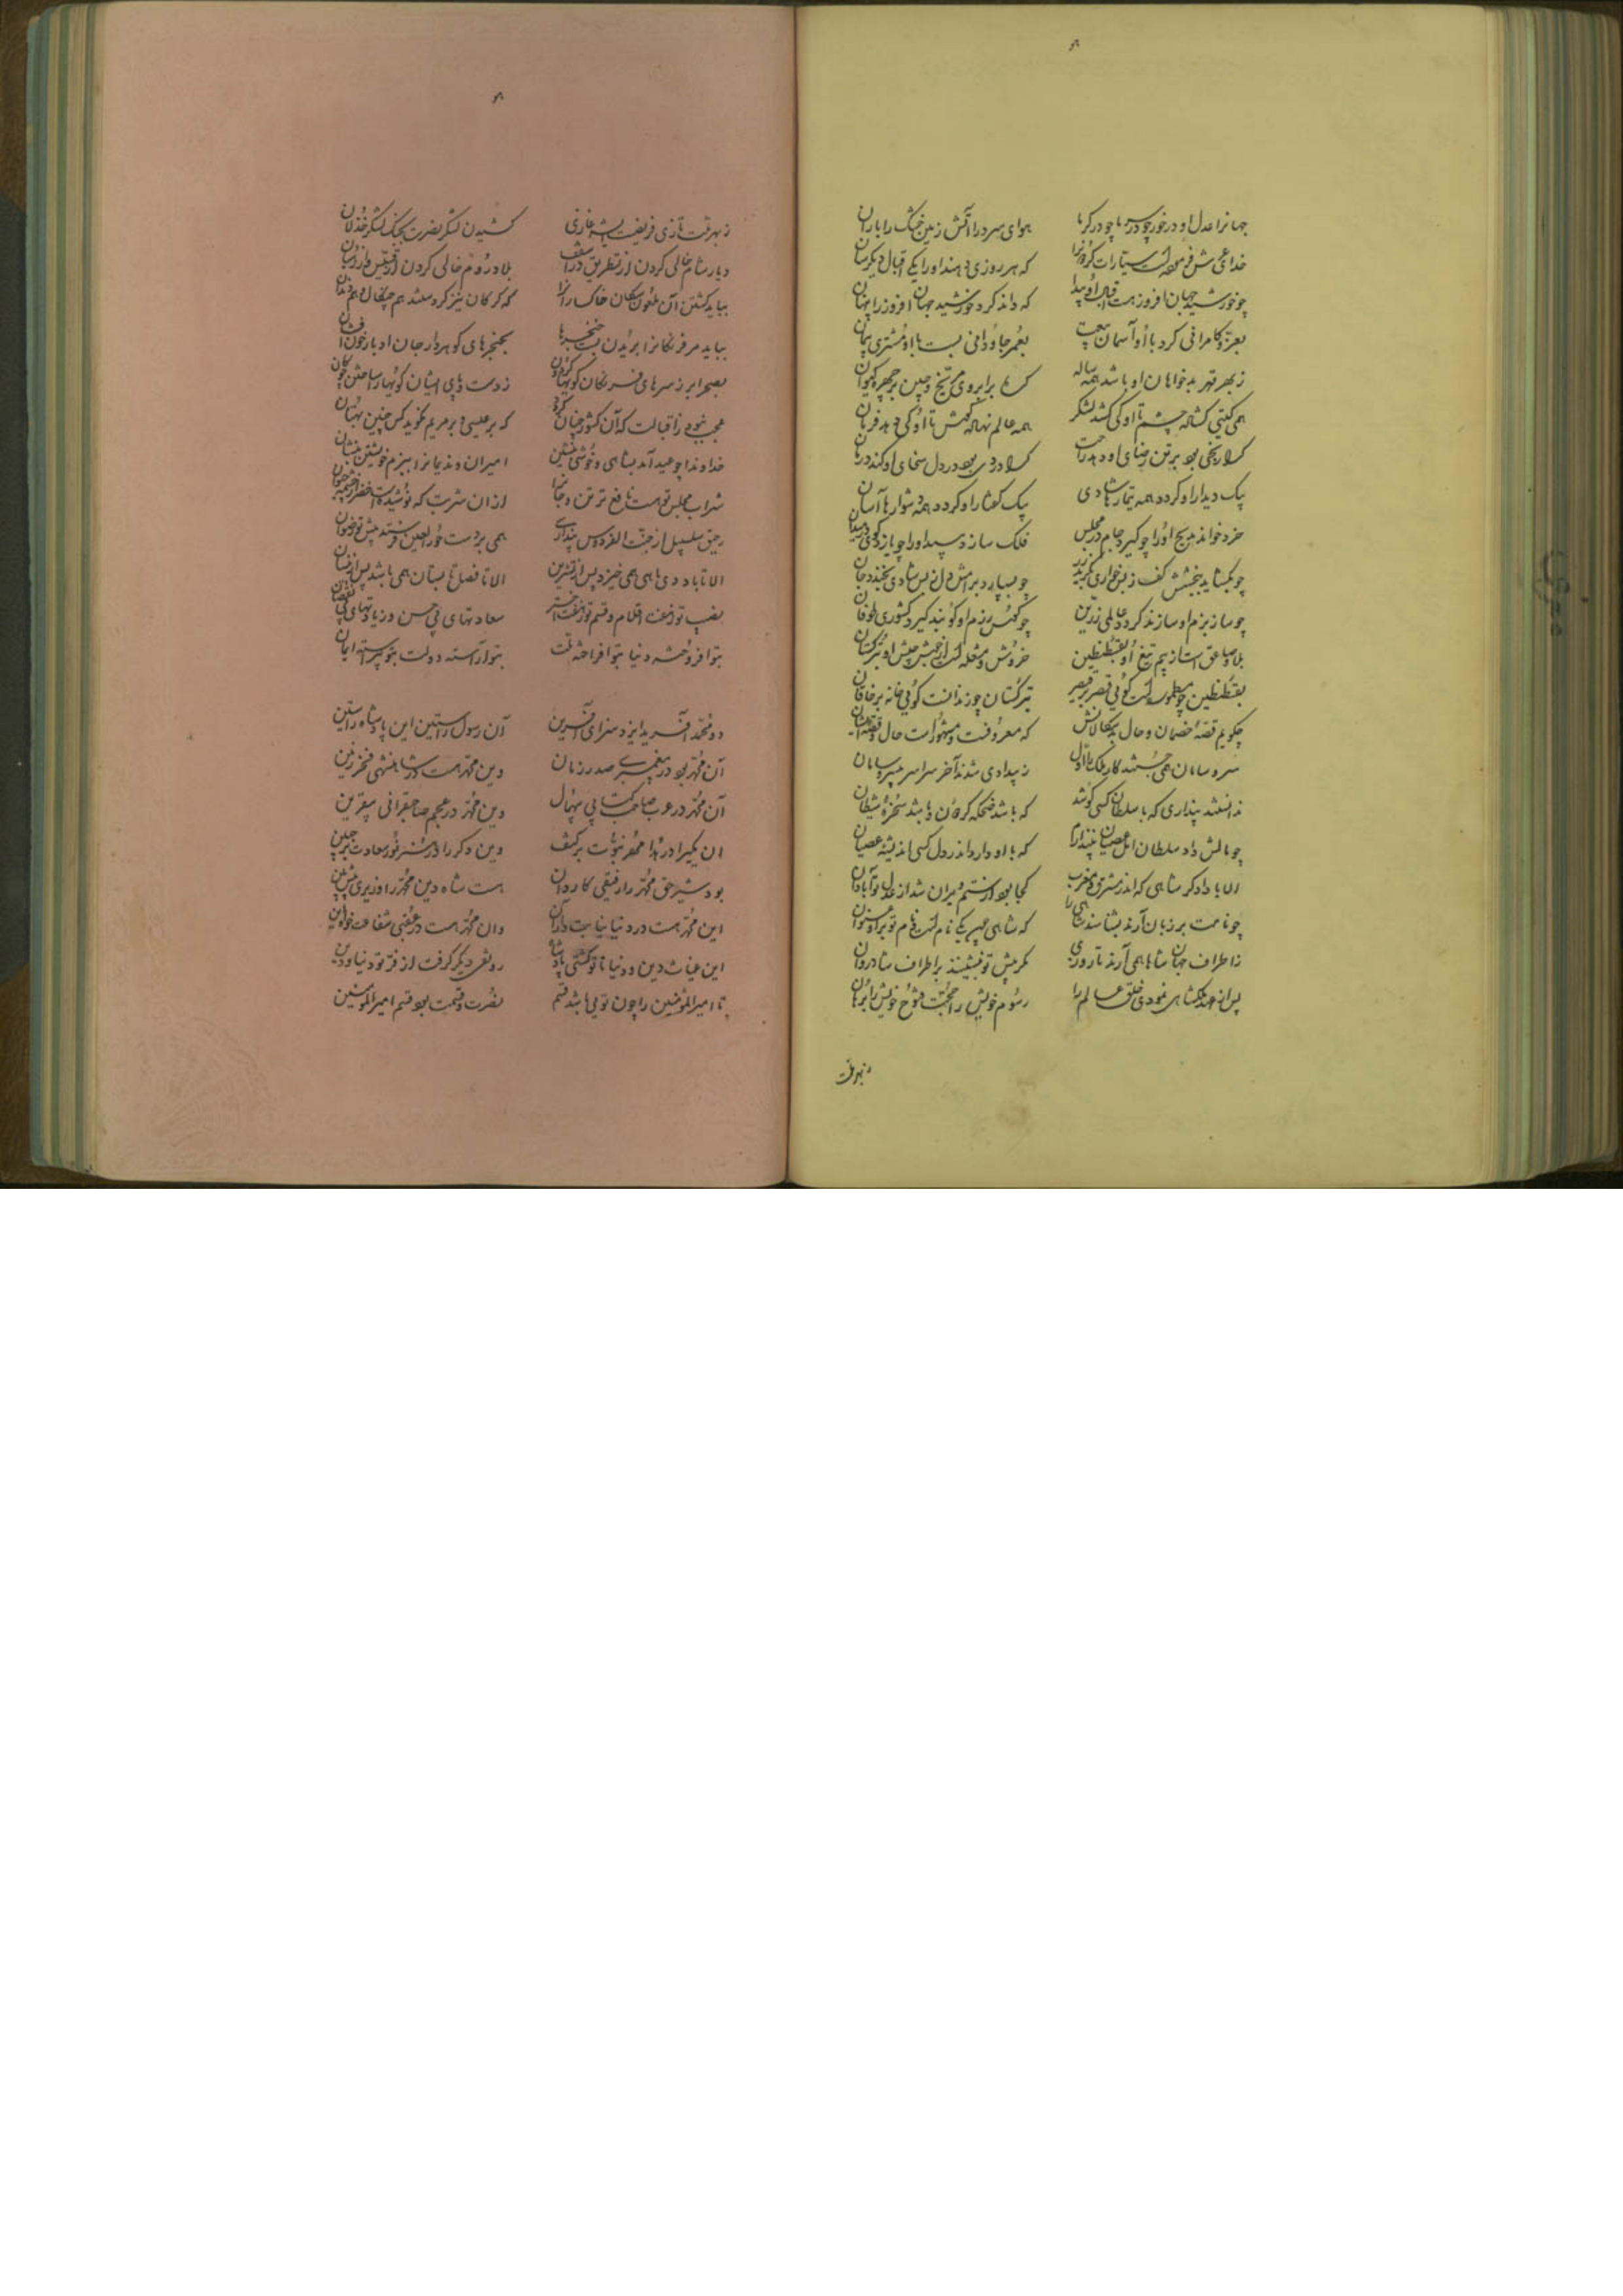 جهانرا عدل او درخور چو در سرما چو در گرما هوای سرد را آتش زمین خشک را باران
خدای عرش فرموده است سیارات گردونرا که هر روزی دهند او را یکی اقبال دیگرسان
چو خورشید جهان افروز هست اقبال او پیدا که داند کرد خورشید جهان افروز را پنهان
بعز و کامرانی کرد با او آسمان بیعت بعمر جاودانی بست با او مشتری پیمان
ز بهر قهر بدخواهان او باشد همه ساله گره بر ابروی مریخ و چین بر چهره کیوان
همی گیتی گشاده چشم تا او کی کشد لشکر همه عالم نهاده گوش تا او کی دهد فرمان
کرا رنجی بود بر تن رضای او دهد راحت کرا دردی بود در دل سخای او کند درمان
بیک دیدار او گردد همه تیمارها شادی بیک گفتار او گردد همه دشوارها آسان
خرد خواند مدیح او را چو گیرد جام در مجلس فلک سازد سپر او را چو یازد گوی در میدان
چو بگشاید ببخشش کف ز بس خواری بگرید زر چو بسپارد برامش دل ز بس شادی بخندد جان
چو ساز بزم او سازند گردد عالمی زرین چو کوس رزم او کوبند گیرد کشوری طوفان
بلا و صاعق است از بیم تیغ او بقسطنطین خروش و مشغله است از جنبش جیش او بترکستان
بقسطنطین چو مظلوم است گوئی قصر بر قیصر بترکستان چو زندانست گوئی خانه بر خاقان
چگویم قصه خصمان و حال بدسگالانش که معروفست و مشهور است حال و قصه ایشان
سر و سامان همی جستند کار ملک را اول ز بیدادی شدند آخر سراسر بی سر و سامان
ندانستند پنداری که با سلطان کسی کوشد که باشد ضحکه گردون و باشد سخره شیطان
چو مالش داد سلطان اهل عصیان نپندارم که با او دارد اندر دل کسی اندیشه عصیان
الا یا دادگر شاهی که اندر مشرق و مغرب کجا بود از ستم ویران شد از عدل تو آبادان
چو نامت بر زبان آرند بشناسند شاهی را که شاهی چیر یکی نام است و نام تو بر او عنوان
ز اطراف جهان شاهان همی آرند تا روزی مگر پیش تو بنشینند بر اطراف شادروان
پس از عهد ملکشاهی نمودی خلق عالم را رسوم خویش را حجت فتوح خویش را برهان
ز بهر فت
ز بهر فتح تازی فریضه است ای شه غازی کشیدن لشکر نصرت بجنگ لشکر خذلان
دیار شام خالی کردن از بطریق و از اسقف بلاد روم خالی کردن از قسیس و از رهبان
بباید کشتن آن ملعون سگان خاکسارانرا که گرگان نیز گردستند هم چنگال و هم دندان
بباید مر فرنگانرا بریدن پشت خنجرها بخنجرهای گوهردار جان اوبار خون افشان
بصحرا بر ز سرهای فرنگان گویها کردن ز دست و پای ایشان گویها را ساختن چوگان
عجب نبود ز اقبالت که آن کشور چنان گردد که بر عیسی و بر مریم نگوید کس چنین بهتان
خداوندا چو عید آمد بشاهی و خوشی بنشین امیران و ندیمانرا ببزم خویشتن بنشان
شراب مجلس تو هست نافع تر تن و جانرا از ان شربت که نوشیده است خضر از چشمه حیوان
رحیق سلسبیل از جنت الفردوس پنداری همی بر دست حور العین فرستد پیش تو رضوان
الا تا باد دی ماهی همی خیزد پس از تشرین الا تا فصل تابستان همی باشد پس از نیسان
نصیب تو ز هفت اقلام و قسم تو ز هفت اختر سعادتهای بی نحس و زیادتهای بی نقصان
بتو افروخته دنیا بتو افراخته ملت بتو آراسته دولت بتو پیراسته ایمان
دو محمد آفرید ایزد سزای آفرین آن رسول راستین این پادشاه راستین
آن محمد بود در پیغمبری صدر زمان وین محمد هست در شاهنشهی فخر زمین
آن محمد در عرب صاحب کتابی بی همال وین محمد در عجم صاحبقرانی بیقرین
ان یکیرا در ندا مهر نبوت بر کتف وین دگر را در سر نور سعادت بر جبین
بود شیر حق محمد را رفیقی کاردان هست شاه دین محمد را وزیری پیش بین
این محمد هست در دنیا نیابت دار آن وان محمد هست در عقبی شفاعت خواه این
این غیاث دین و دنیا تا تو گشتی پادشا رونقی دیگر گرفت از فر تو دنیا و دین
تا امیر المؤمنین را چون توئی باشد قسیم نصرت و قسمت بود قسم امیر المؤمنین